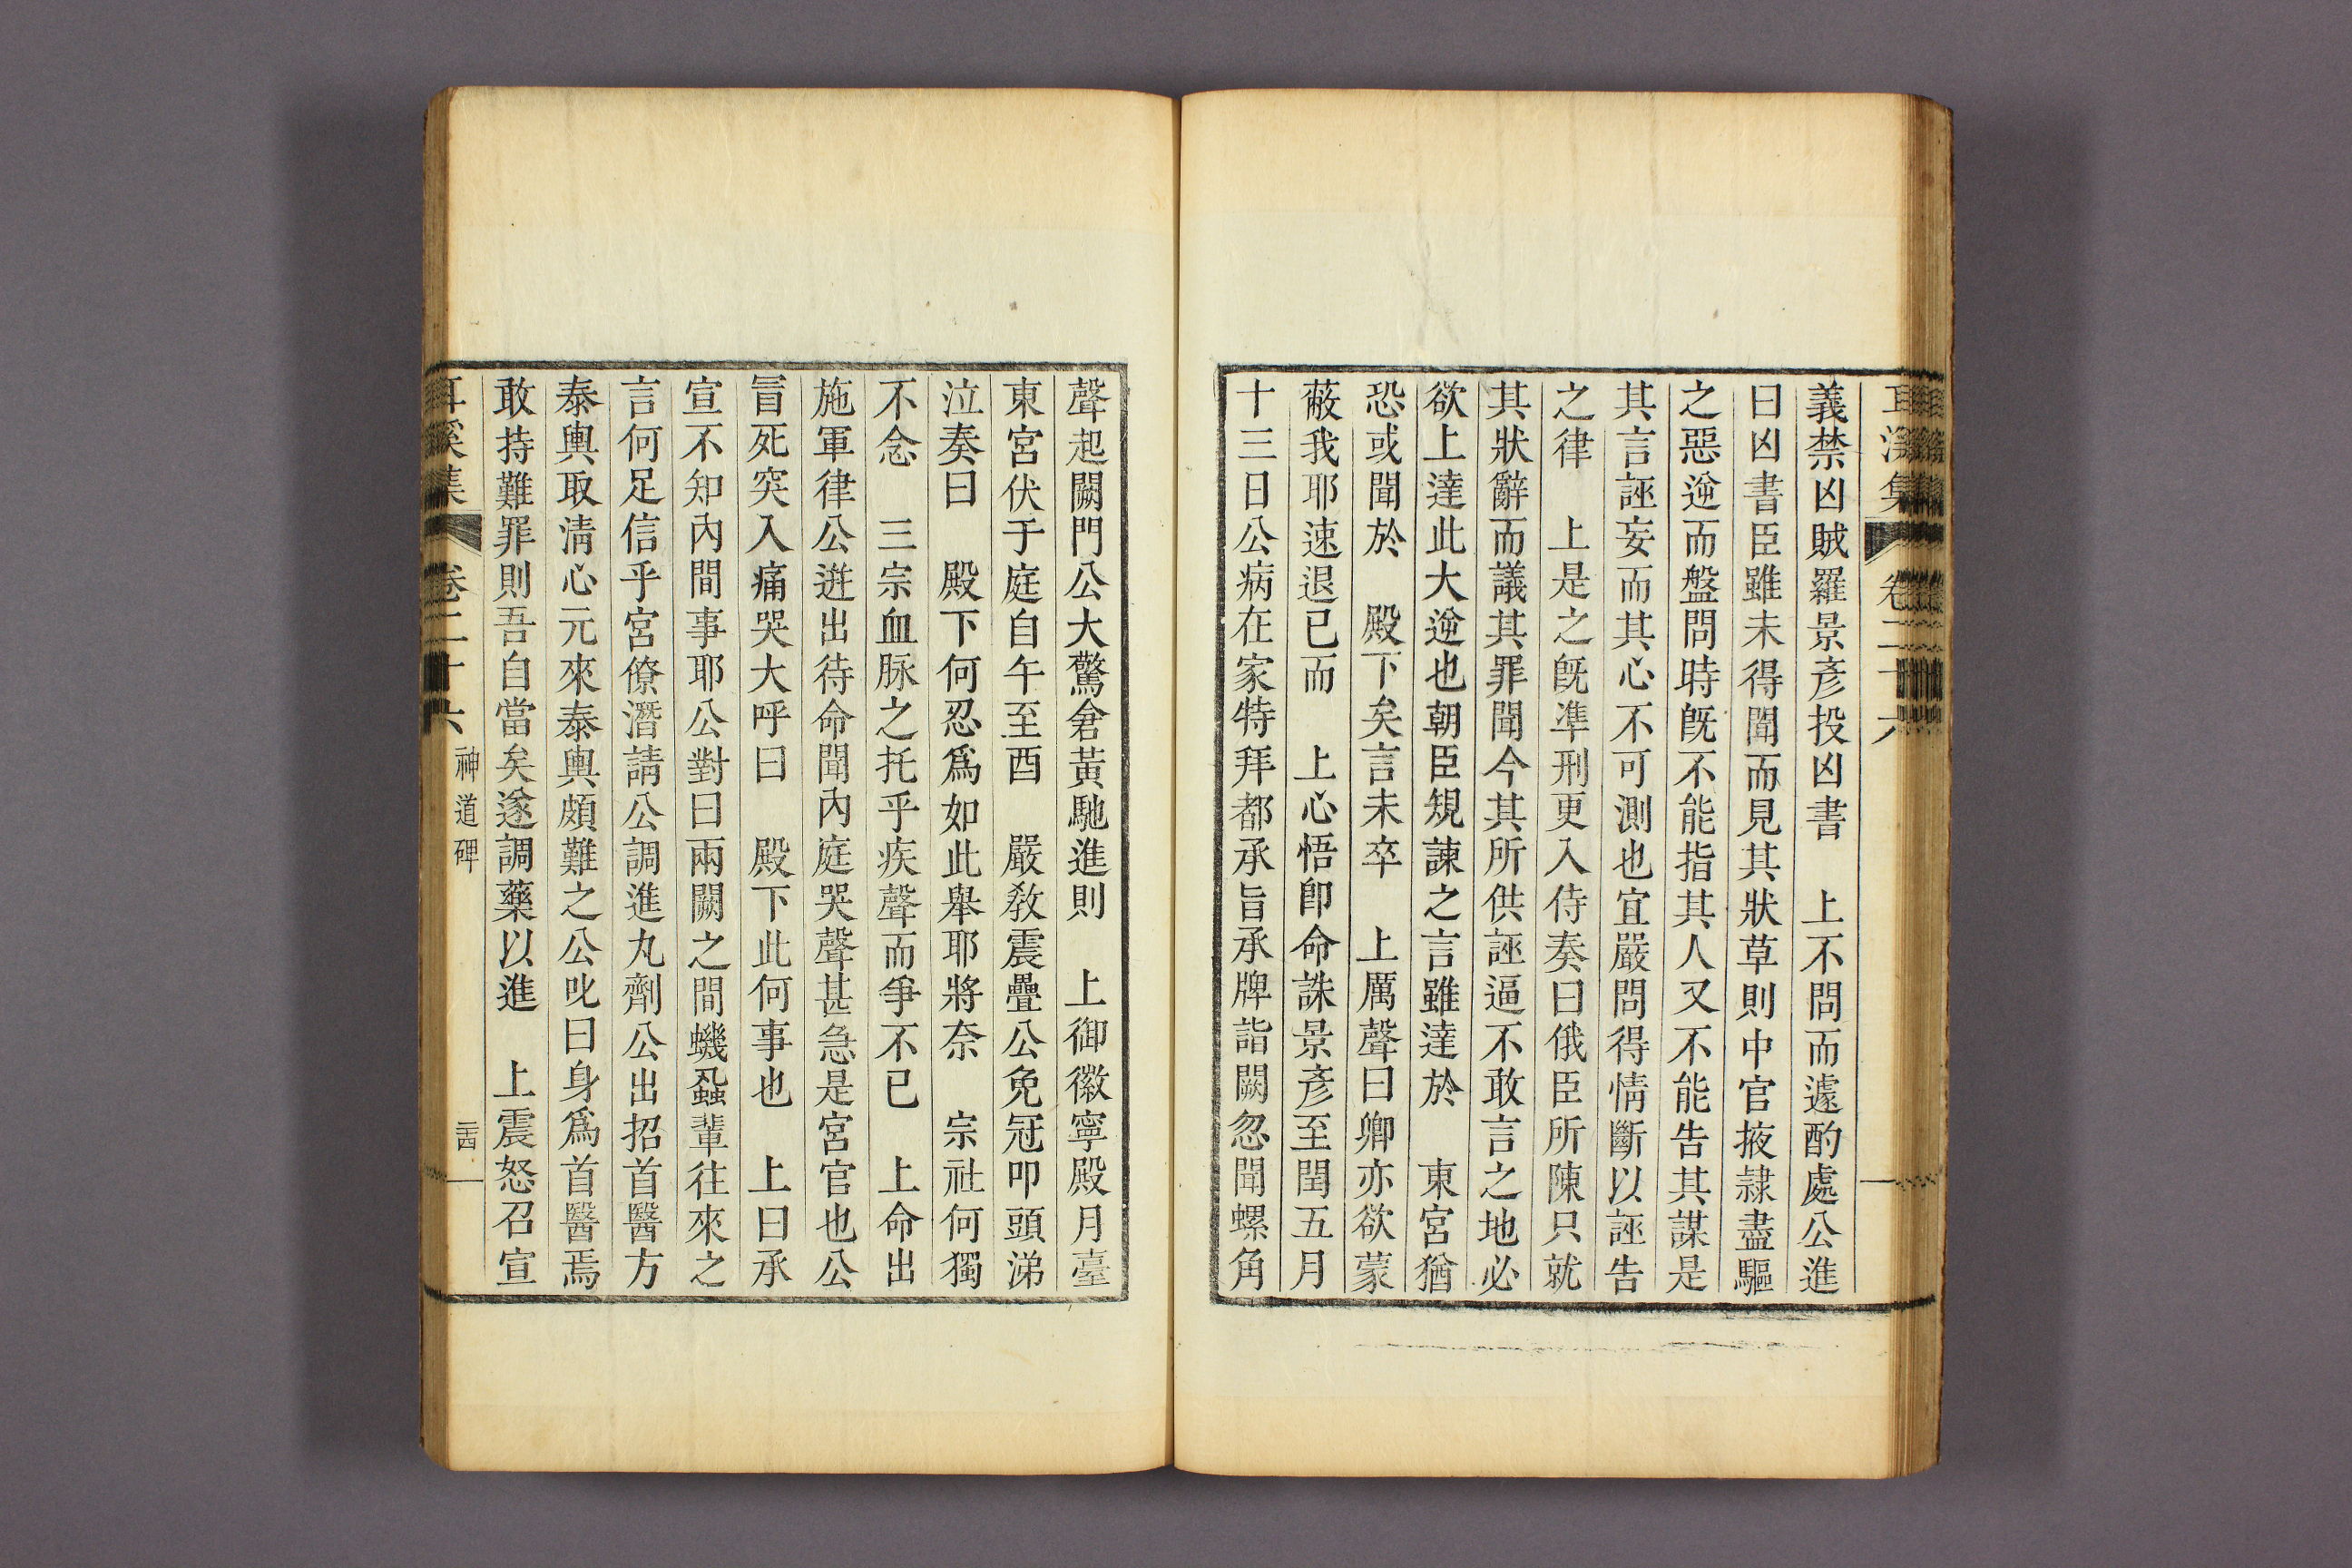 耳溪集 卷二十六
義禁凶賊羅景彥投凶書 上不問而遽酌處公進
曰凶書臣雖未得聞而見其狀草則中官掖隷盡驅
之惡逆而盤問時旣不能指其人又不能告其謀是
其言誣妄而其心不可測也宜嚴問得情斷以誣告
之律 上是之旣準刑更入侍奏曰俄臣所陳只就
其狀辭而議其罪聞今其所供誣逼不敢言之地必
欲上達此大逆也朝臣規諫之言雖達於 東宮猶
恐或聞於 殿下矣言未卒 上厲聲曰卿亦欲蒙
蔽我耶速退已而 上心悟卽命誅景彥至閏五月
十三日公病在家特拜都承旨承牌詣闕忽聞螺角
聲起闕門公大驚倉黃馳進則 上御徽寧殿月臺
東宮伏于庭自午至酉 嚴敎震疊公免冠叩頭涕
泣奏曰 殿下何忍爲如此舉耶將奈 宗社何獨
不念 三宗血脉之托乎疾聲而爭不已 上命出
施軍律公迸出待命聞內庭哭聲甚急是宮官也公
冒死突入痛哭大呼曰 殿下此何事也 上曰承
宣不知內間事耶公對曰兩闕之間蟣蝨輩往來之
言何足信乎宮僚潛請公調進丸劑公出招首醫方
泰輿取淸心元來泰輿頗難之公叱曰身爲首醫焉
敢持難罪則吾自當矣遂調藥以進 上震怒召宣
耳溪集 卷二十六 神道碑 二十四